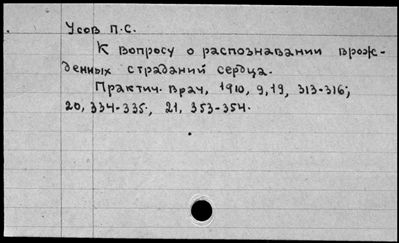 Усов П.С.
К вопросу о распознавании врож-
денных страданий сердца.
Практич. врач, 1910, 9,19, 313-316;
20, 334-335; 21, 353-354.